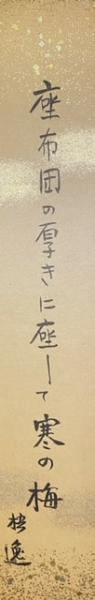 座布団の厚きに座して寒の梅